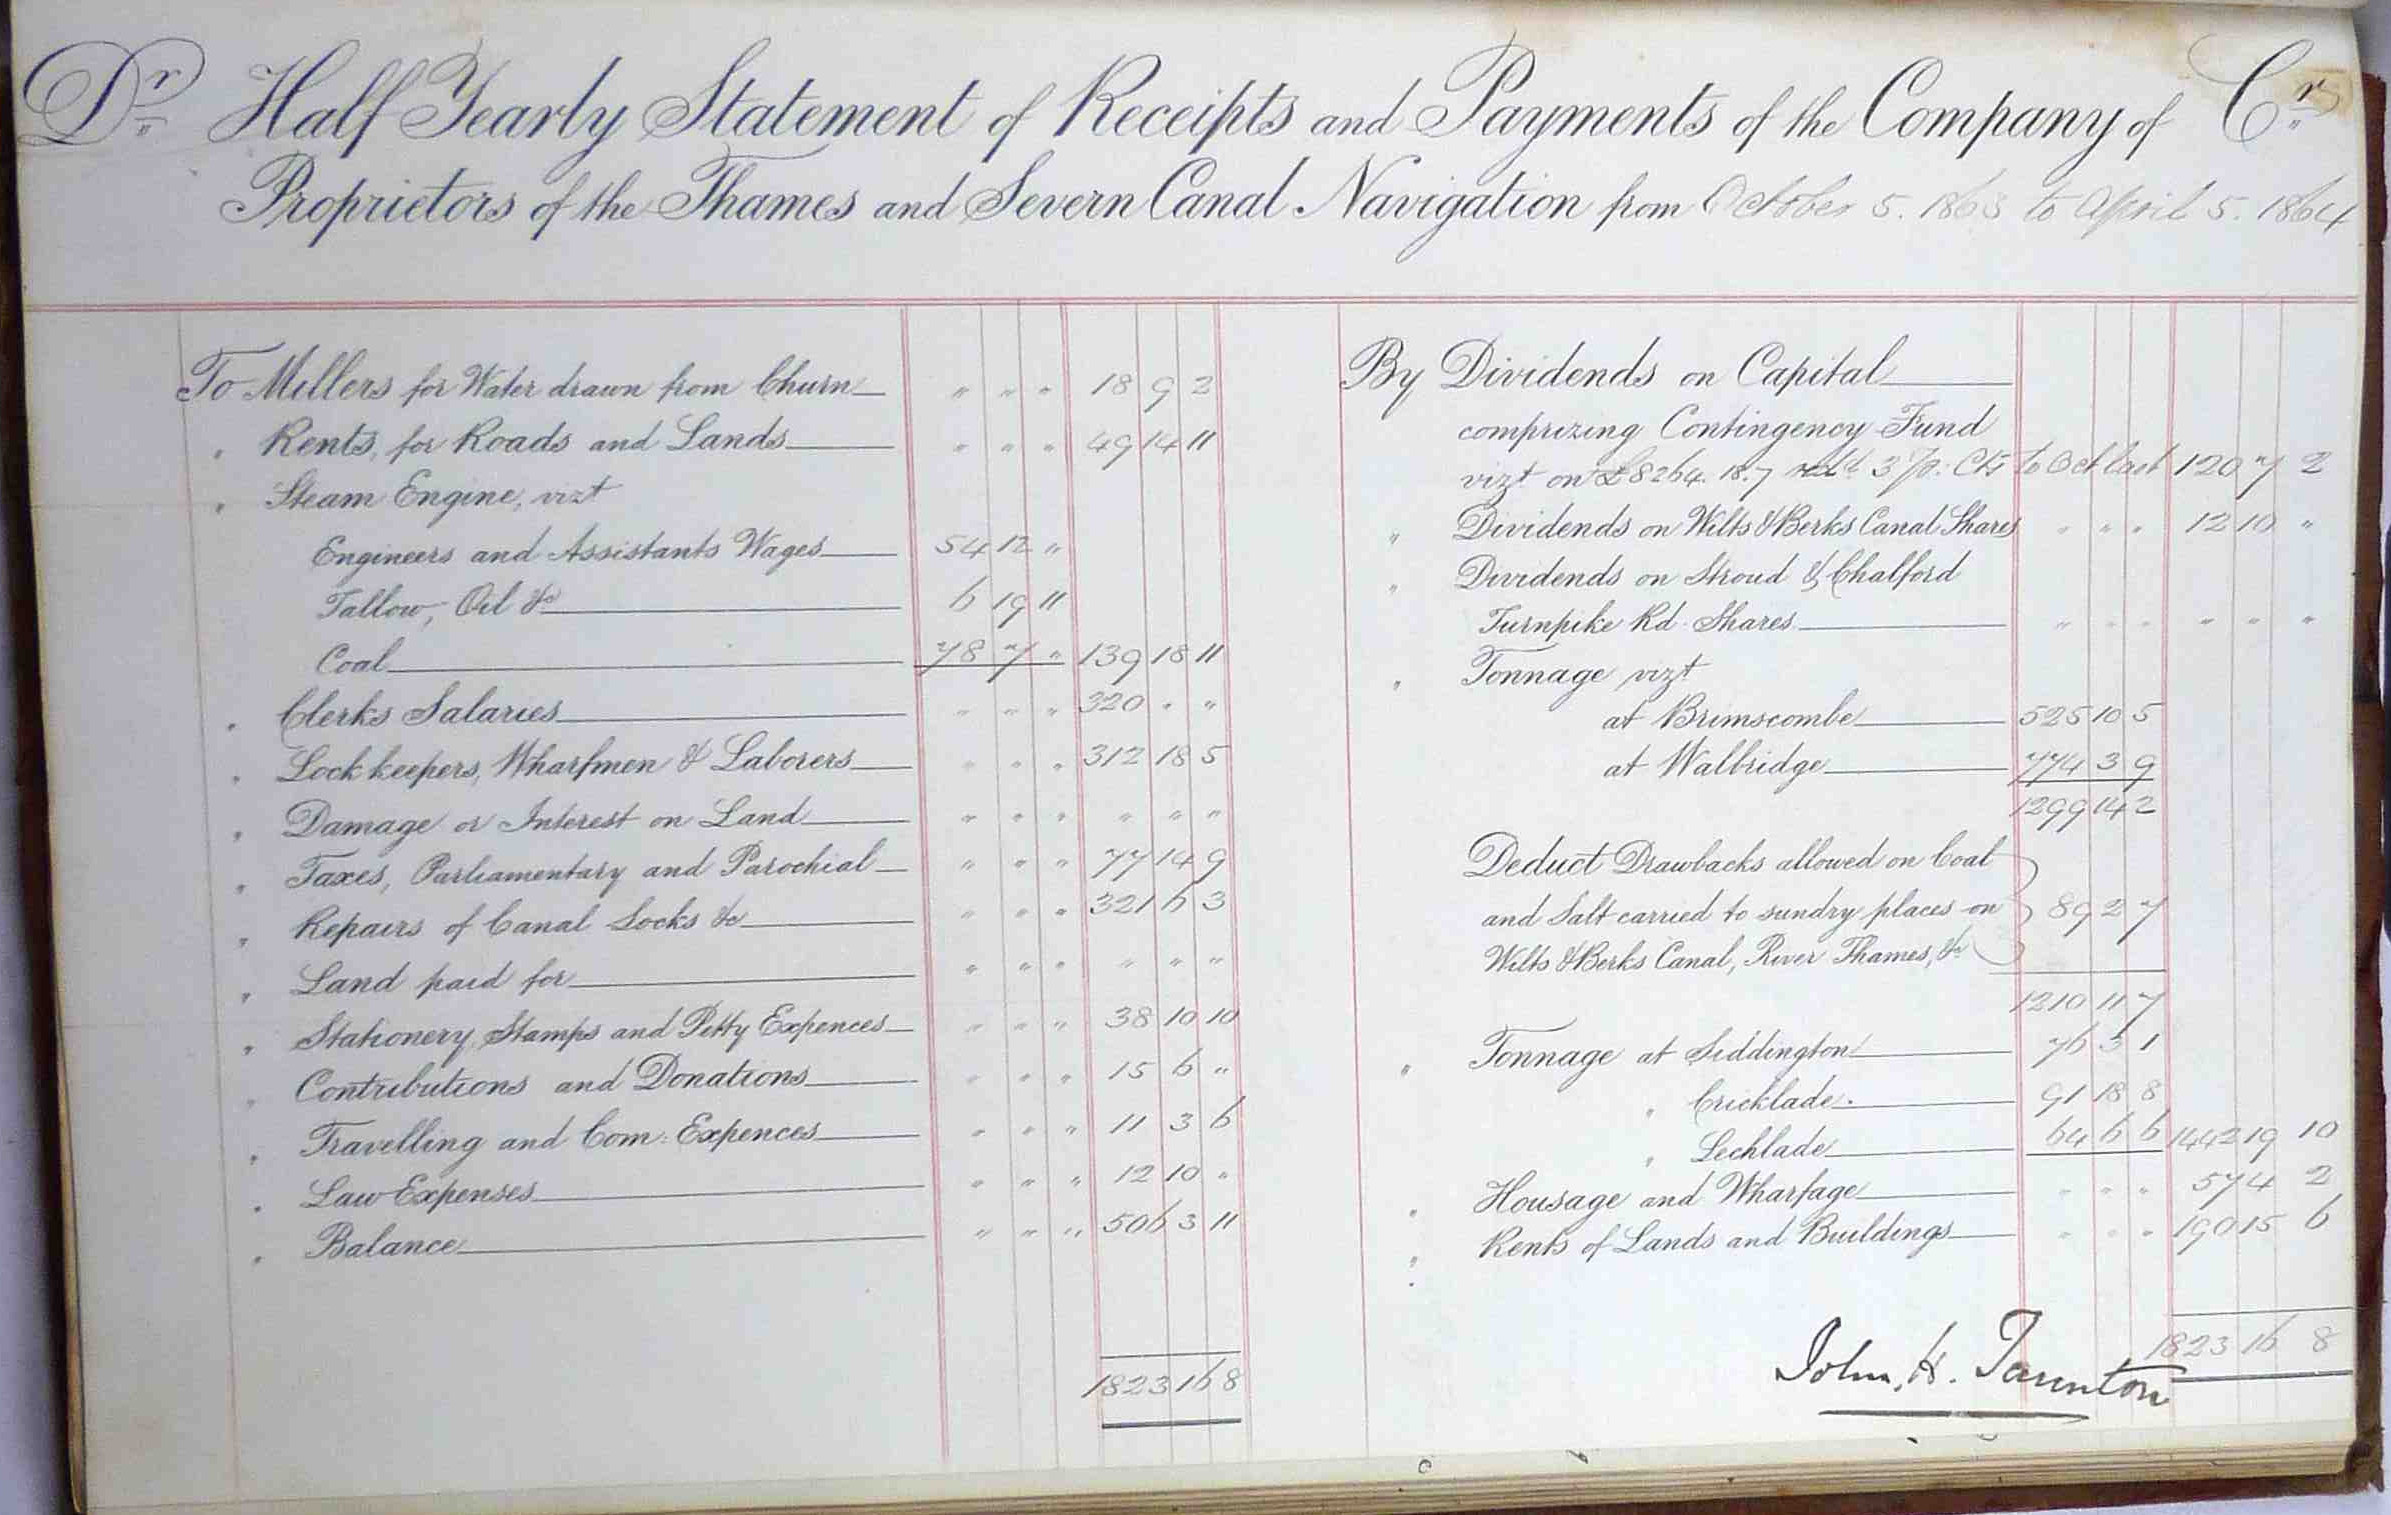 Dr Half Yearly Statement of Receipts and Payments of the Company of Cr
Proprietors of the Thames and Severn Canal Navigation from October 5. 1863 to April 5. 1864
To Millers for Water drawn from Churn " " " 18 9 2
" Rents, for Roads and Lands " " " 49 14 11
" Steam Engine, vizt
Engineers and Assistants Wages 54 12 "
Tallow, Oil &c 6 19 11
Coal 78 7 " 139 18 11
" Clerks Salaries " " " 320 " "
" Lockkeepers, Wharfmen & Laborers " " " 312 18 5
" Damage or Interest on Land " " " " " "
" Taxes, Parliamentary and Parochial " " " 77 14 9
" Repairs of Canal Locks &c " " " 321 6 3
" Land paid for " " " " " "
" Stationery, Stamps and Petty Expences " " " 38 10 10
" Contributions and Donations " " " 15 6 "
" Travelling and Com: Expences " " " 11 3 6
" Law Expenses " " " 12 10 "
" Balance " " " 506 3 11
1823 16 8
By Dividends on Capital
comprizing Contingency Fund
vizt on £8264. 18. 7 3 p: Cts to Oct last 120 7 2
" Dividends on Wilts & Berks Canal Shares " " " 12 10 "
" Dividends on Stroud & Chalford
Turnpike Rd Shares " " " " " "
" Tonnage vizt
at Brimscombe 525 10 5
at Walbridge 774 3 9
1299 14 2
Deduct Drawbacks allowed on Coal
and Salt carried to sundry places on 89 2 7
Wilts & Berks Canal, River Thames, &c
1210 11 7
" Tonnage at Siddington 76 3 1
" Cricklade 91 18 8
" Lechlade 64 6 6 1442 19 10
" Housage and Wharfage " " " 57 4 2
" Rents of Lands and Buildings " " " 190 15 6
"
1823 16 8
John. H. Taunton